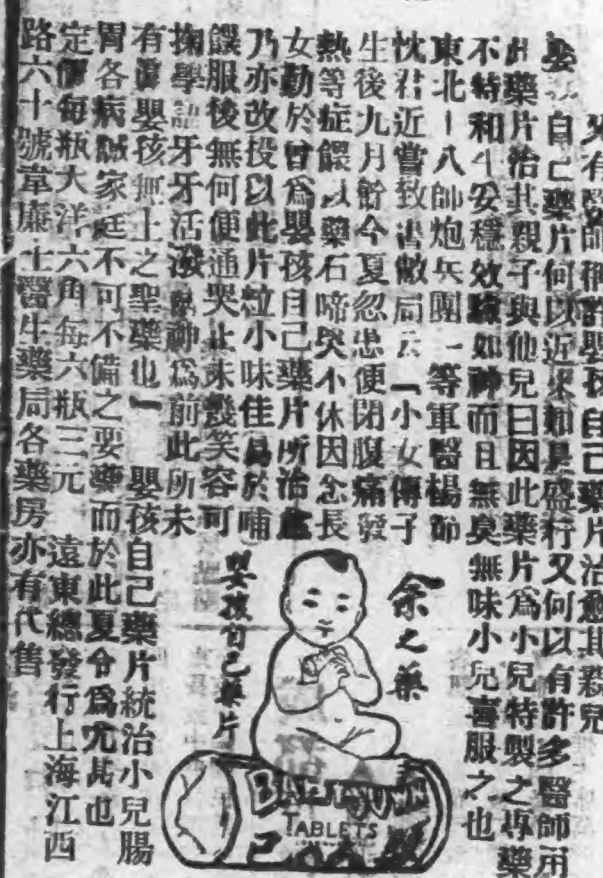 又有醫師稱許嬰孩自己藥片治愈其親兒
嬰 自己藥片何以近來如是盛行又何以有許多醫師用
此藥片治其親子與他兒曰因此藥片爲小兒特製之專藥
不特和平安穩效驗如神而且無臭無味小兒喜服之也
東北十八師炮兵團一等軍醫楊節
忱君近嘗致書敝局云「小女傳子
生後九月餘今夏忽患便閉腹痛發
熱等症餵以藥石啼哭不休因念長
女動於曾爲嬰孩自己藥片所治
乃亦改投以此片粒小味佳易於哺
餵服後無何便通哭止未幾笑容可
掬學語牙牙活潑 神爲前此所未
有眞嬰孩無上之聖藥也」
嬰孩自己藥片統治小兒腸
胃各病誠家庭不可不備之要藥而於此夏令爲尤甚也
定價每瓶大洋六角每六瓶三元
遠東總發行上海江西
路六十號韋廉士醫生藥局各藥房亦有代售
余之藥
嬰孩自己藥片
BABY'S OWN
TABLETS
己